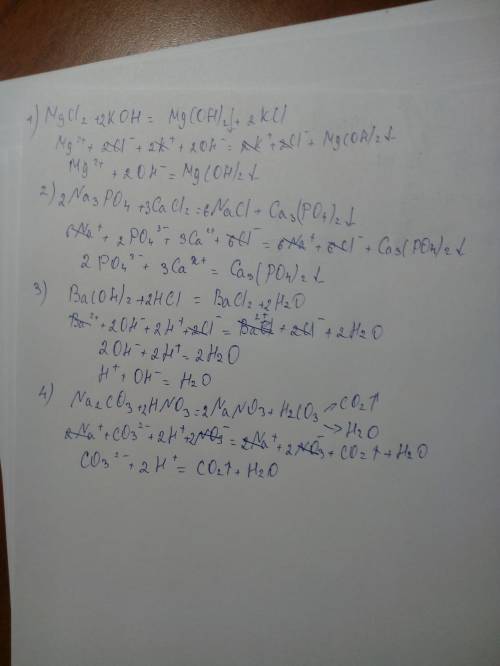 1) MgCl2 + 2KOH = Mg(OH)2↓ + 2KCl
Mg²⁺ + 2Cl⁻ + 2K⁺ + 2OH⁻ = 2K⁺ + 2Cl⁻ + Mg(OH)2↓
Mg²⁺ + 2OH⁻ = Mg(OH)2↓
2) 2Na3PO4 + 3CaCl2 = 6NaCl + Ca3(PO4)2↓
6Na⁺ + 2PO4³⁻ + 3Ca²⁺ + 6Cl⁻ = 6Na⁺ + 6Cl⁻ + Ca3(PO4)2↓
2PO4³⁻ + 3Ca²⁺ = Ca3(PO4)2↓
3) Ba(OH)2 + 2HCl = BaCl2 + 2H2O
Ba²⁺ + 2OH⁻ + 2H⁺ + 2Cl⁻ = Ba²⁺ + 2Cl⁻ + 2H2O
2OH⁻ + 2H⁺ = 2H2O
H⁺ + OH⁻ = H2O
4) Na2CO3 + 2HNO3 = 2NaNO3 + H2CO3 → CO2↑
→ H2O
2Na⁺ + CO3²⁻ + 2H⁺ + 2NO3⁻ = 2Na⁺ + 2NO3⁻ + CO2↑ + H2O
CO3²⁻ + 2H⁺ = CO2↑ + H2O